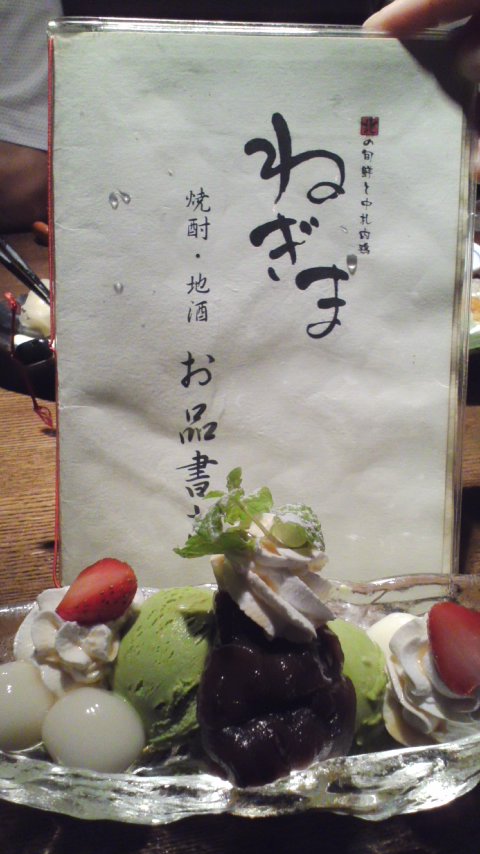 北の旬鮮と中札内鶏
ねぎま
焼酎・地酒
お品書